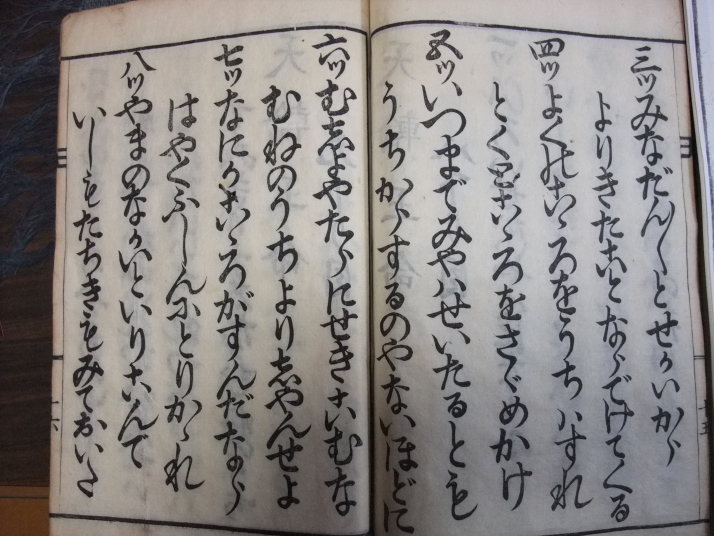 三ツみなだん〳〵とせかいから
よりきたことならでけてくる
四ツよくのこゝろをうちハすれ
とくとこゝろをさだめかけ
五ツいつまでみやハせいたるとも
うちからするのやないほどに
十五
六ツむしよやたらにせきこむな
むねのうちよりしやんせよ
七ツなにかこゝろがすんだなら
はやくふしんにとりかゝれ
八ツやまのなかいといりこんで
いしもたちきもみておいた
十六